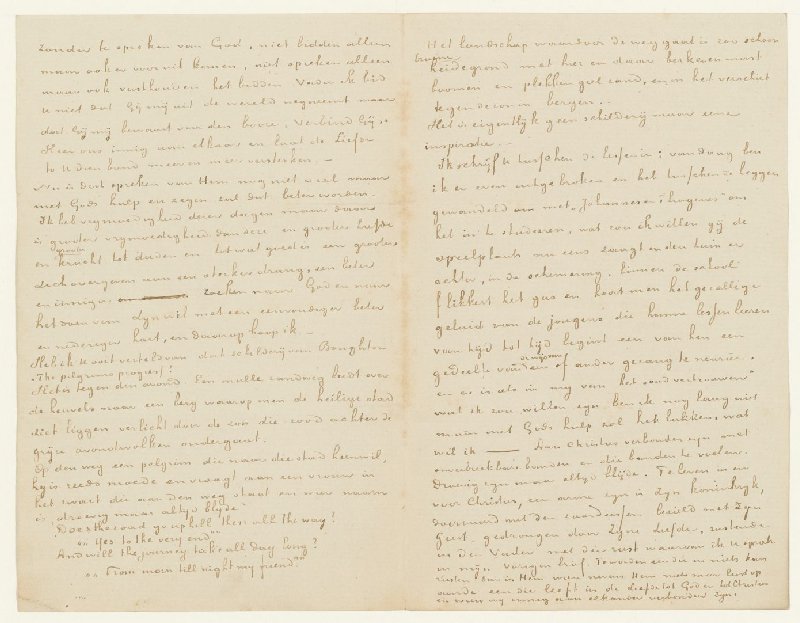 zonder te spreken van God, niet bidden alleen
maar ook er voor uit komen, niet spreken alleen
maar ook vasthouden het bidden Vader ik bid
U niet dat Gij mij uit de wereld wegneemt maar
dat Gij mij bewaart van den booze, Verbind Gij o
Heer ons innig aan elkaar en laat de Liefde
tot U dien band meer en meer versterken. —
Nu is dat spreken van Hem nog niet veel maar
met Gods hulp en zegen zal dat beter worden.
Ik heb vrijmoedigheid dezer dagen maar daar
is grooter vrijmoedigheid dan deze en grooter liefde
en grooter kracht tot dulden en tot wat goeds een grooter
zich overgeven aan een sterker drang, een beter
en inniger zoeken naar God en naar
het doen van Zijn wil met een eenvoudiger beter
en nederiger hart, en daarop hoop ik —
Heb ik U ooit verteld van dat schilderij van Boughton
"The pilgrims progress"?
Het is tegen den avond. Een mulle zandweg leidt over
de heuvels naar een berg waarop men de heilige stad
ziet liggen verlicht door de zon die rood achter de
grijze avondwolken ondergaat.
Op den weg een pelgrim die naar die stad heen wil,
hij is reeds moede en vraagt aan een vrouw in
het zwart die aan den weg staat en wier naam
is "droevig maar altyd blyde"
"Does the road go uphill then all the way?
"Yes to the very end"
"And will the journey take all day long?
"From morn till night my friend"
Het landschap waardoor de weg gaat is zoo schoon
bruine heidegrond met hier en daar berken en mast
boomen en plekken geel zand, en in het verschiet
tegen de zon in bergen.
Het is eigentlyk geen schilderij maar eene
inspiratie. —
Ik schrijf U tusschen de lessen in; vandaag ben
ik er even uitgebroken en het tusschen de heggen
gewandeld om met "Johannes en Theogenes" ons
het in te studeeren, wat zou ik willen gij de
speelplaats om eens zaagt en den tuin er
achter, in de schemering. Binnen de school
flikkert het gas en hoort men het gezellige
geluid van de jongens die hunne lessen leeren
van tyd tot tyd begint een van hen een
gedeelte van den of ander gezang te neuriën.
en er is als in mij van het "oud vertrouwen"
wat ik zou willen zyn ben ik nog lang niet
maar met Gods hulp zal het lukken, wat
wil ik — aan Christus verbonden zyn met
onverbreekbare banden en die banden te voelen.
Droevig zyn maar altyd blyde. Te leven in en
voor Christus, een arme zyn in Zyn koninkryk,
doorzuurd met den zuurdeesem bezield met Zyn
Geest, gedrongen door Zyne Liefde, rustende
in den Vader met die rust waarvan ik U sprak
in myn vorigen brief. Te worden een die in niets kan
rusten dan in Hem, wien niets van Hem nu meer lust op
aarde een die leeft in de Liefde tot God en tot Christus
en waarin wy innig aan elkander verbonden zyn.